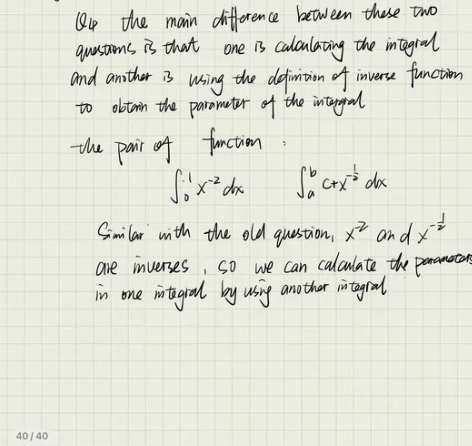 Q4 the main difference between these two
questions is that one is calculating the integral
and another is using the definition of inverse function
to obtain the parameter of the integral
the pair of function :
∫₀¹ x⁻² dx ∫ₐᵇ c+x^(-1/2) dx
Similar with the old question, x⁻² and x^(-1/2)
are inverses, so we can calculate the parameters
in one integral by using another integral
40 / 40